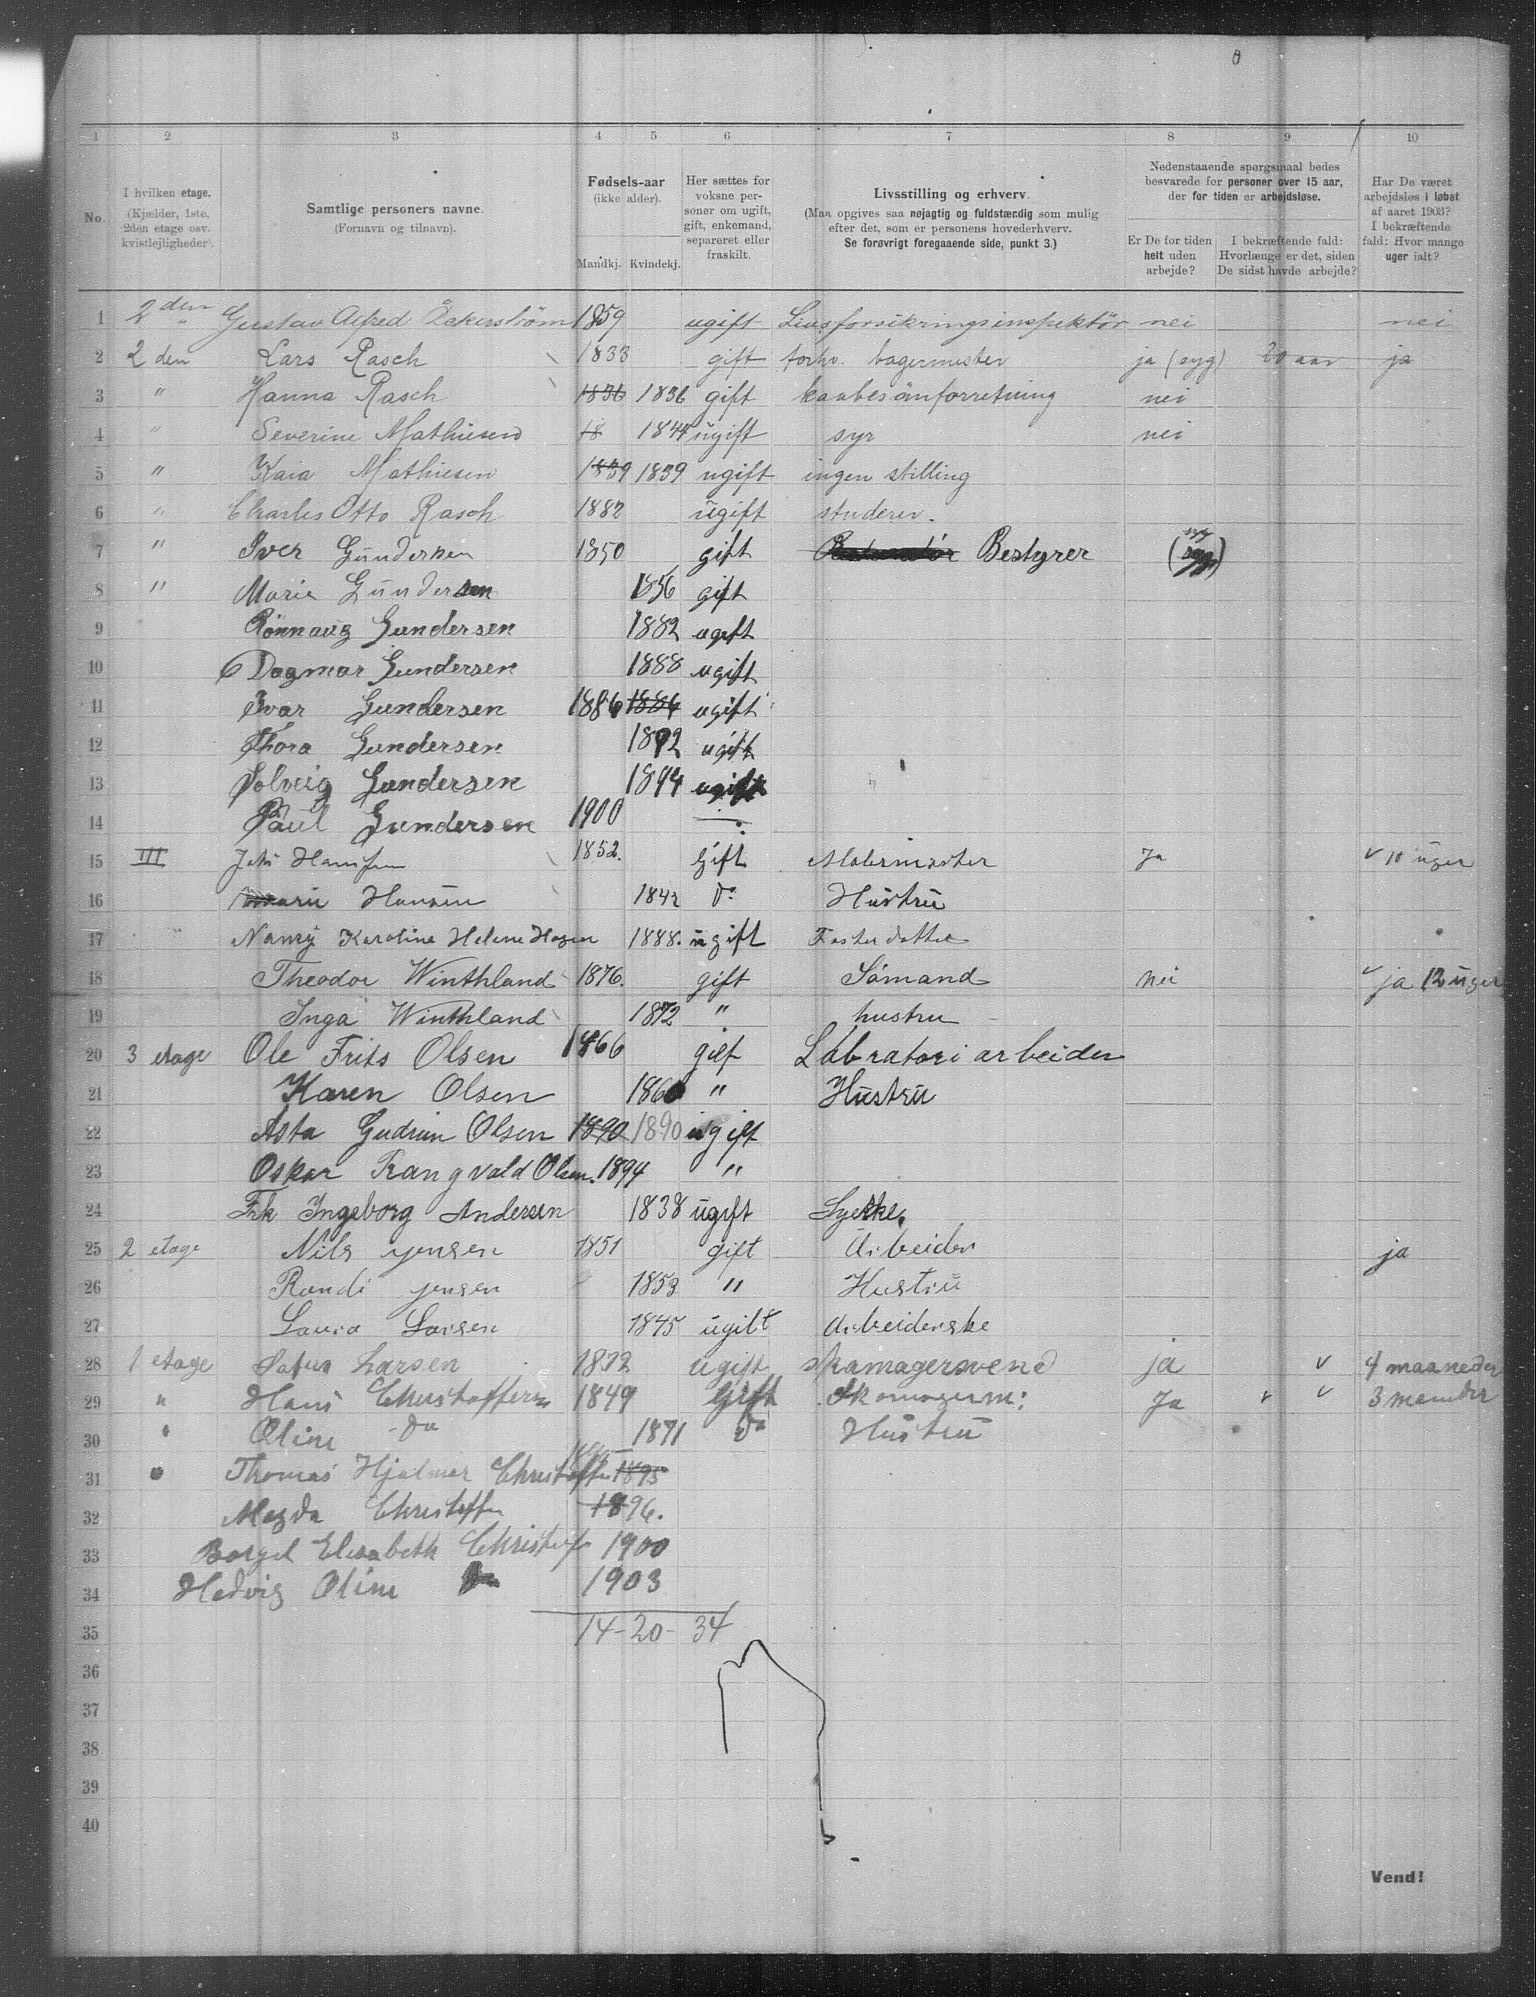 1 2 3 4 5 6 7 8 9 10
No.
I hvilken etage. (Kjælder, 1ste, 2den etage osv. kvistlejligheder).
Samtlige personers navne. (Fornavn og tilnavn).
Fødsels-aar (ikke alder). Mandkj. Kvindekj.
Her sættes for voksne personer om ugift, gift, enkemand, separeret eller fraskilt.
Livsstilling og erhverv. (Maa opgives saa nøjagtig og fuldstændig som mulig efter det, som er personens hovederhverv. Se forøvrigt foregaaende side, punkt 3.)
Nedenstaaende spørgsmaal bedes besvarede for personer over 15 aar, der for tiden er arbejdsløse.
Er De for tiden helt uden arbejde?
I bekræftende fald: Hvorlænge er det, siden De sidst havde arbejde?
Har De været arbejdsløs i løbet af aaret 1903? I bekræftende fald: Hvor mange uger ialt?
1 2den Gustav Alfred Åckerström 1859 ugift Livsforsikringsinspektør nei nei
2 2den Lars Rasch 1833 gift forhv. bagermester ja (syg) 20 aar ja
3 " Hanna Rasch 1836 1836 gift nei
4 " Severine Mathiesen 18 1844 ugift syr nei
5 " Kaia Mathiesen 1839 1839 ugift ingen stilling
6 " Charles Otto Rasch 1882 ugift studerer.
7 " Iver Gundersen 1850 gift Bestyrer (syg)
8 " Marie Gundersen 1856 gift
9 Rönnaug Gundersen 1882 ugift
10 Dagmar Gundersen 1888 ugift
11 Ivar Gundersen 1886 1886 ugift
12 Thora Gundersen 1892 ugift
13 Solveig Gundersen 1894 ugift
14 Paul Gundersen 1900
15 III Hansen 1852. Gift Malermester Ja 10 uger
16 Marie Hansen 1842 Do Hustru
17 Nanny Karoline Helene Hagen 1888. ugift Fosterdatter
18 Theodor Winthland 1876. gift Sömand nei ja 12 uger
19 Inga Winthland 1872 " hustru
20 3 etage Ole Frits Olsen 1866 gift Labratoriarbeider
21 Karen Olsen 1860 " Hustru
22 Asta Gudrun Olsen 1890 1890 ugift
23 Oskar Rangvald Olsen. 1894 "
24 Frk Ingeborg Andersen 1838 ugift Syerske.
25 2 etage Nils Jensen 1851 gift Arbeider ja
26 Randi Jensen 1853 " Hustru
27 Laura Larsen 1845 ugift Arbeiderske
28 1 etage Larsen 1872 ugift skomagersvend ja 4 maaneder
29 " Hans Christoffersen 1849 Gift Skomagerm: Ja 3 maneder
30 " Oline Do 1871 Do Hustru
31 " Thomas Hjalmar Christoffer 1895 1895
32 Magda Christoffer 1896.
33 Borgel Elisabeth Christoffer 1900
34 Hedvig Oline Do 1903
35 14 - 20 - 34
36
37
38
39
40
Vend!